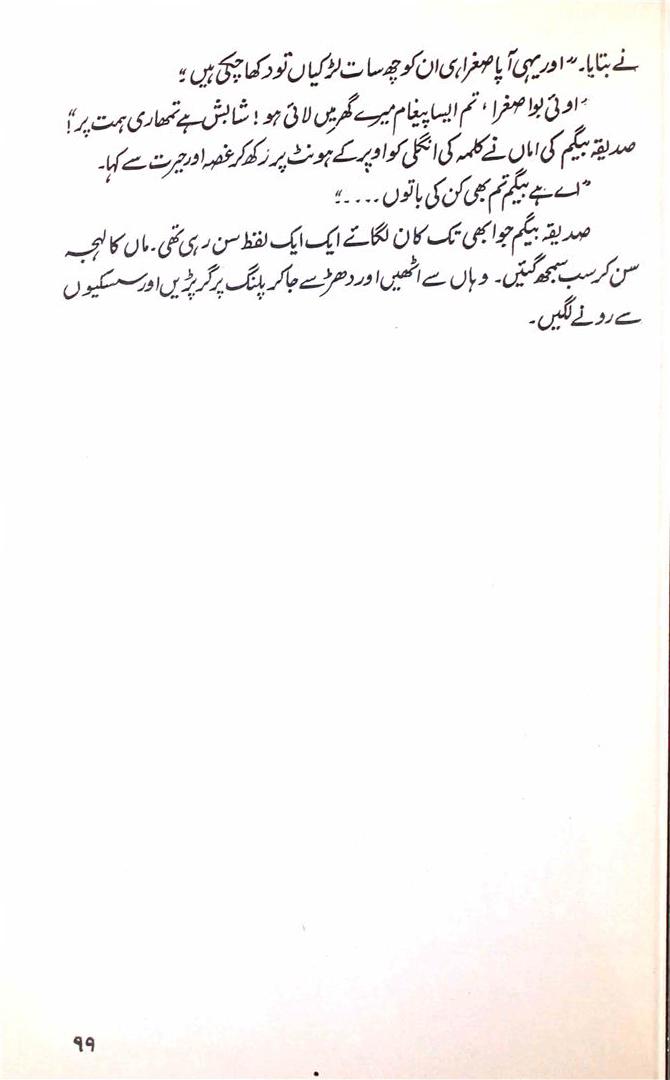 نے بتایا۔ "اور یہی آپا صغرا ہی ان کو چھ سات لڑکیاں تو دکھا چکی ہیں"
"اوئی بوا صغرا، تم ایسا پیغام میرے گھر میں لائی ہو! شابش ہے تمھاری ہمت پر!"
صدیقہ بیگم کی اماں نے کلمہ کی انگلی کو اوپر کے ہونٹ پر رکھ کر غصہ اور حیرت سے کہا۔
"اے ہے بیگم تم بھی کن کی باتوں ...."
صدیقہ بیگم جو ابھی تک کان لگائے ایک ایک لفظ سن رہی تھی۔ ماں کا لہجہ
سن کر سب سمجھ گئیں۔ وہاں سے اٹھیں اور دھڑ سے جا کر پلنگ پر گر پڑیں اور سسکیوں
سے رونے لگیں۔
۹۹